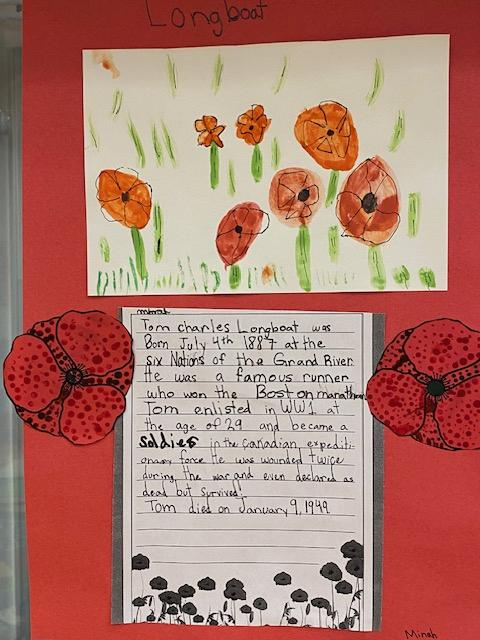 Longboat
minah
Tom charles Longboat was
Born July 4th 1887 at the
six Nations of the Grand River.
He was a famous runner
who won the Boston marathon
Tom enlisted in WW1 at
the age of 29 and became a
soldier in the canadian expediti-
onary force He was wounded twice
during the war and even declared as
dead but survived!
Tom died on January 9, 1949
Minah